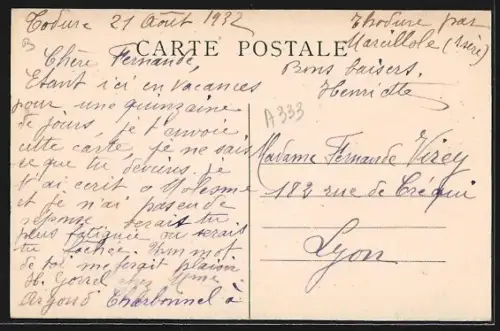 Todure 21 Août 1932
CARTE POSTALE
Chère Fernande,
Etant ici en vacances
pour une quinzaine
de jours, je t'envoie
cette carte, je ne sais
ce que tu deviens je
t'ai ecrit a
et je n'ai pas eu de
reponse serais tu
plus fatiguée ou serais
tu fachée Un mot
de toi me ferait plaisir
H. chez Mme
Argoud Charbonnel à
Thodure par
Marcillole (Isère)
Bons baisers,
Henriette
A333
Madame Fernande Virey
182 rue de Créqui
Lyon